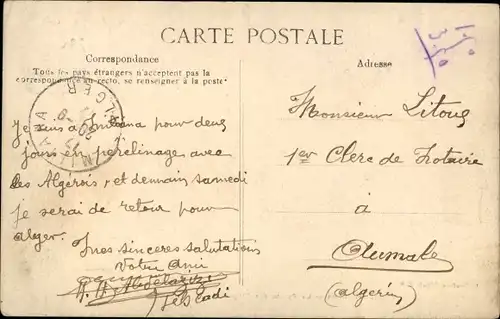 CARTE POSTALE
Correspondance
Tous les pays étrangers n'acceptent pas la
correspondance au recto, se renseigner à la poste
Adresse
ALGER
Je suis à pour deux
jours en pérelinage avec
des Algerois, et demain samedi
je serai de retour pour
alger.
Mes sinceres salutations
Votre Ami
Monsieur Litous
1er Clerc de Notaire
à
Aumale
(Algerie)